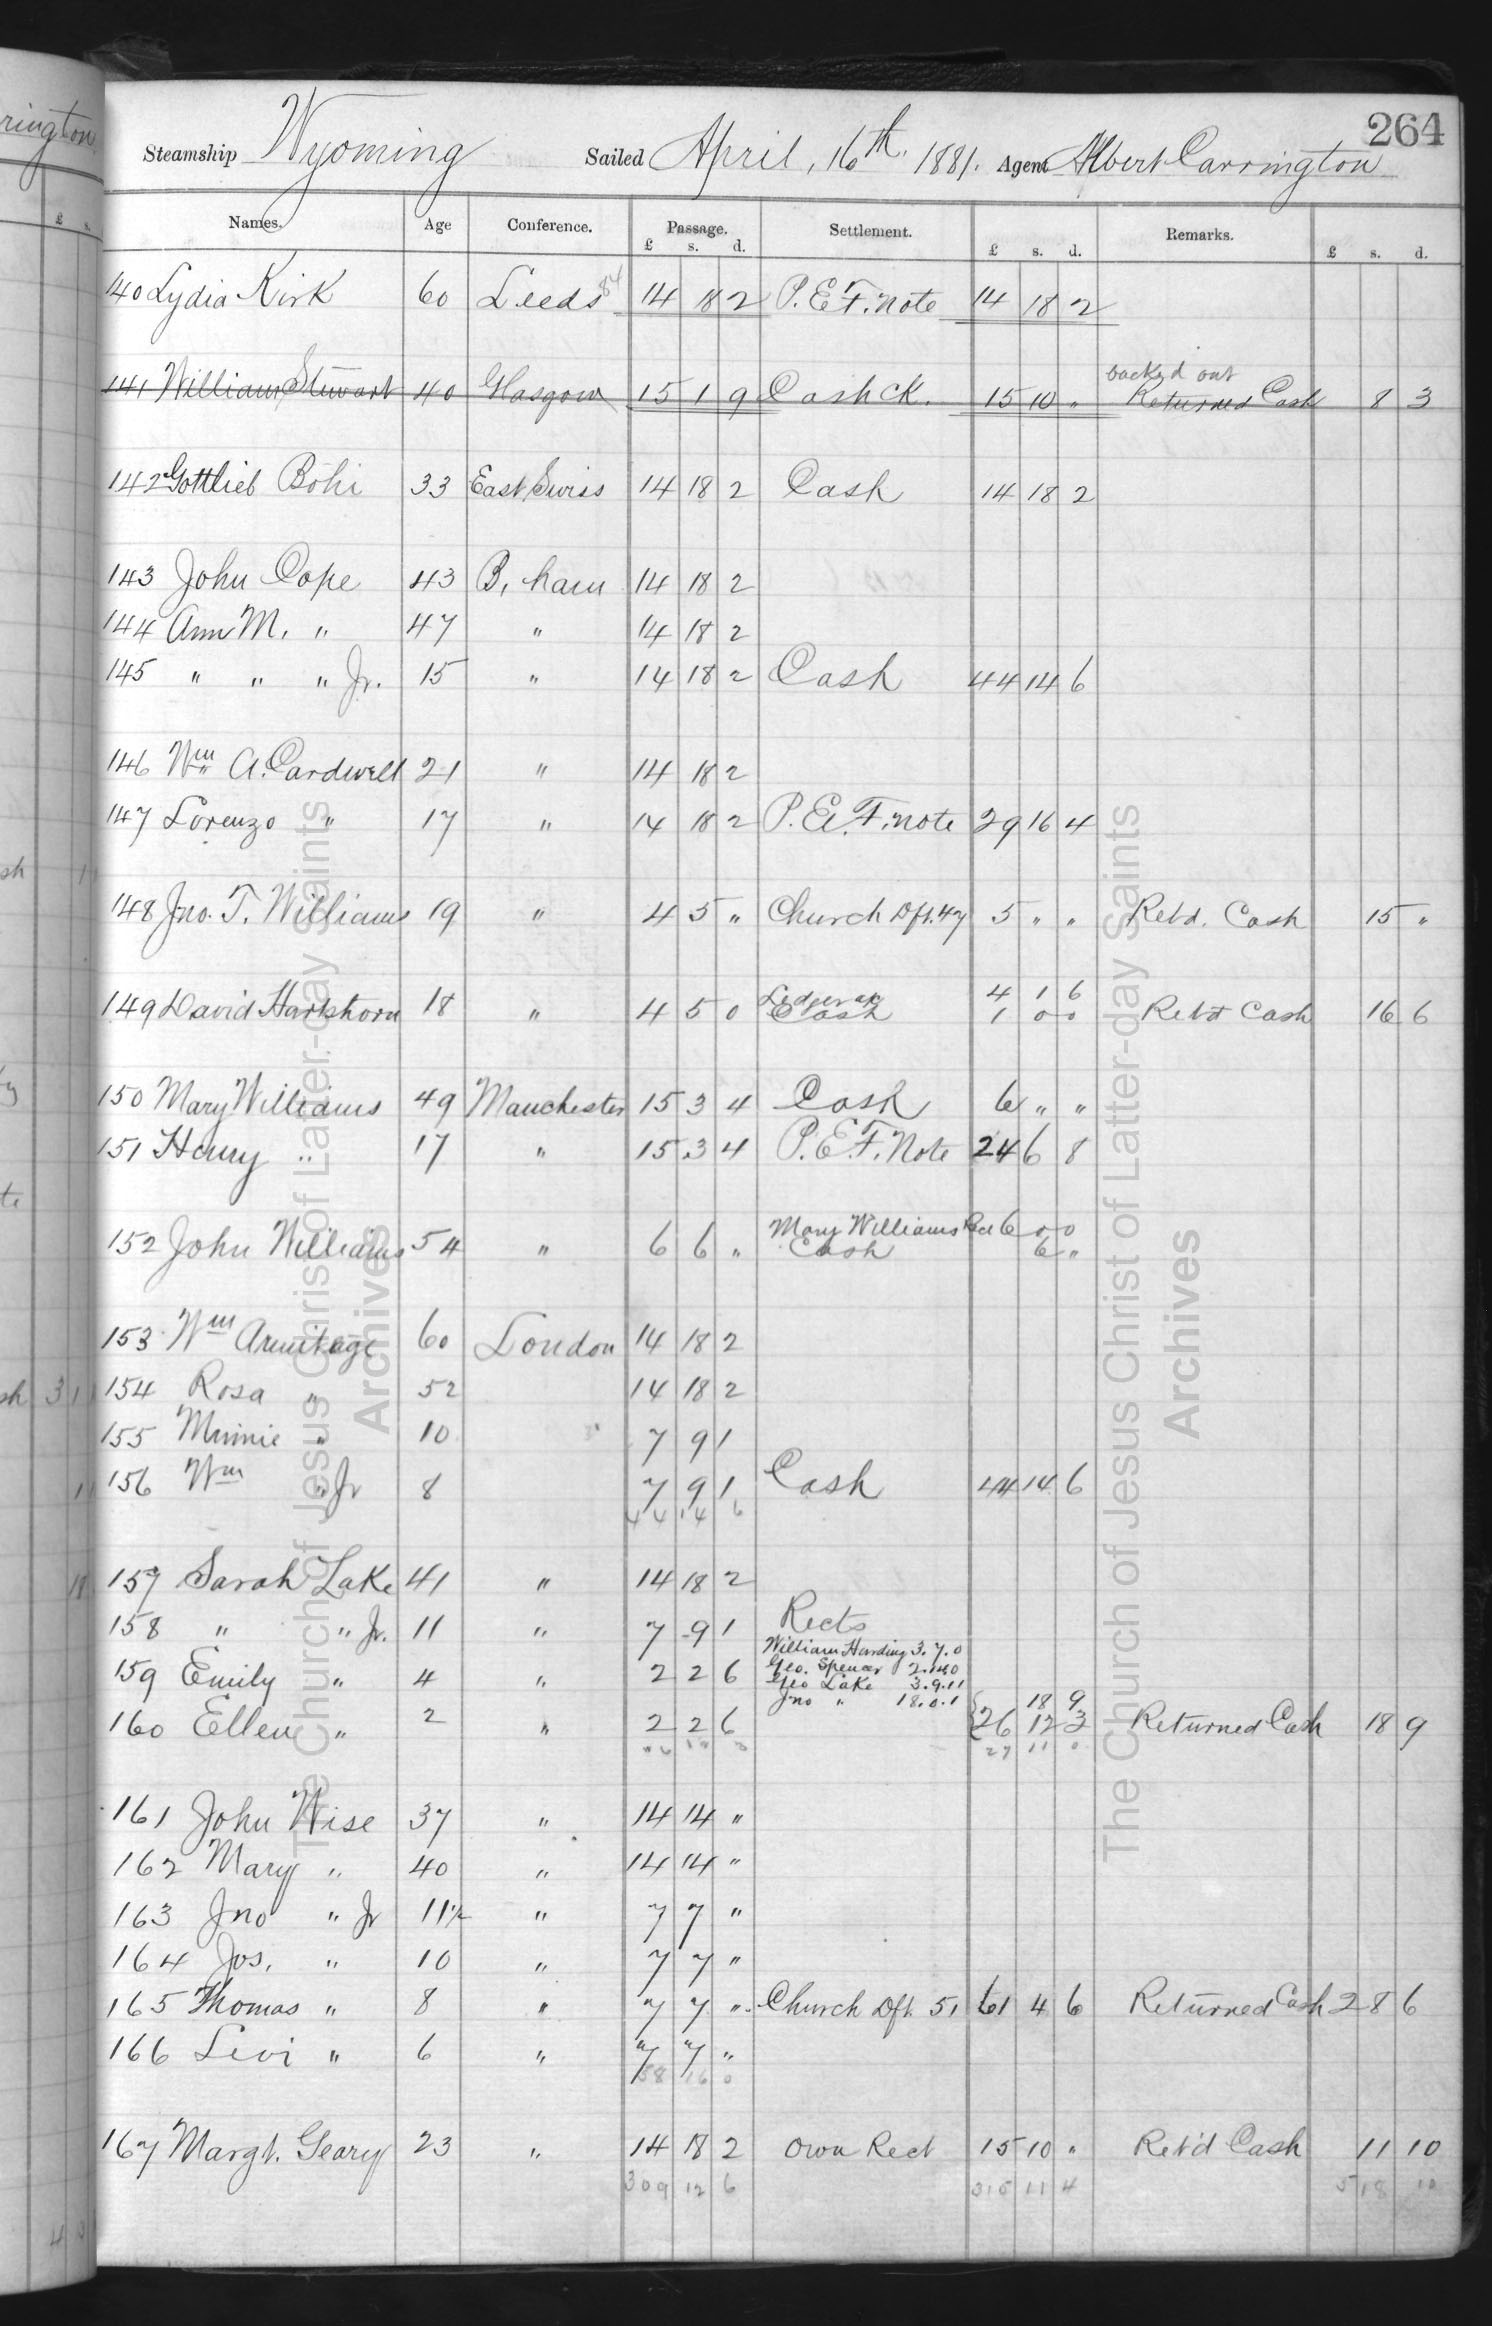 264
Steamship Wyoming Sailed April, 16th 1881. Agent Albert Carrington
Names. Age Conference. Passage. Settlement. Remarks.
£ s. d. £ s. d. £ s. d.
140 Lydia Kirk 60 Leeds 84 14 18 2 P. E. F. note 14 18 2
backed out
141 William Stewart 40 Glasgow 15 1 9 Cash CK. 15 10 " Returned Cash 8 3
142 Gottlieb Böhi 33 East Swiss 14 18 2 Cash 14 18 2
143 John Cope 43 B, ham 14 18 2
144 Ann M. " 47 " 14 18 2
145 " " " Jr. 15 " 14 18 2 Cash 44 14 6
146 Wm A. Cardwell 21 " 14 18 2
147 Lorenzo " 17 " 14 18 2 P. E. F. note 29 16 4
148 Jno. T. Williams 19 " 4 5 " Church Dft. 47 5 " " Retd. Cash 15 "
Ledger 4 1 6
149 David Hartshorn 18 " 4 5 0 Cash 1 0 0 Retd Cash 16 6
150 Mary Williams 49 Manchester 15 3 4 Cash 6 " "
151 Henry " 17 " 15 3 4 P. E. F. Note 24 6 8
Mary Williams Rect 6 0 0
152 John Williams 54 " 6 6 " Cash 6 "
153 Wm Armitage 60 London 14 18 2
154 Rosa " 52 14 18 2
155 Minnie " 10 7 9 1
156 Wm " Jr 8 7 9 1 Cash 44 14 6
44 14 6
157 Sarah Lake 41 " 14 18 2
158 " " Jr. 11 " 7 9 1 Rects
William Harding 3. 7. 0
159 Emily " 4 " 2 2 6 Geo. Spencer 2.14.0
Geo Lake 3.9.11
Jno " 18.0.1 18 9
160 Ellen " 2 " 2 2 6 26 12 3 Returned Cash 18 9
27 11 0
161 John Wise 37 " 14 14 "
162 Mary " 40 " 14 14 "
163 Jno " Jr 11½ " 7 7 "
164 Jos. " 10 " 7 7 "
165 Thomas " 8 " 7 7 " Church Dft. 51 61 4 6 Returned Cash 2 8 6
166 Levi " 6 " 7 7 "
58 16 0
167 Margt. Geary 23 " 14 18 2 Own Rect 15 10 " Ret'd Cash 11 10
309 12 6 315 11 4 5 18 10
The Church of Jesus Christ of Latter-day Saints
Archives
The Church of Jesus Christ of Latter-day Saints
Archives